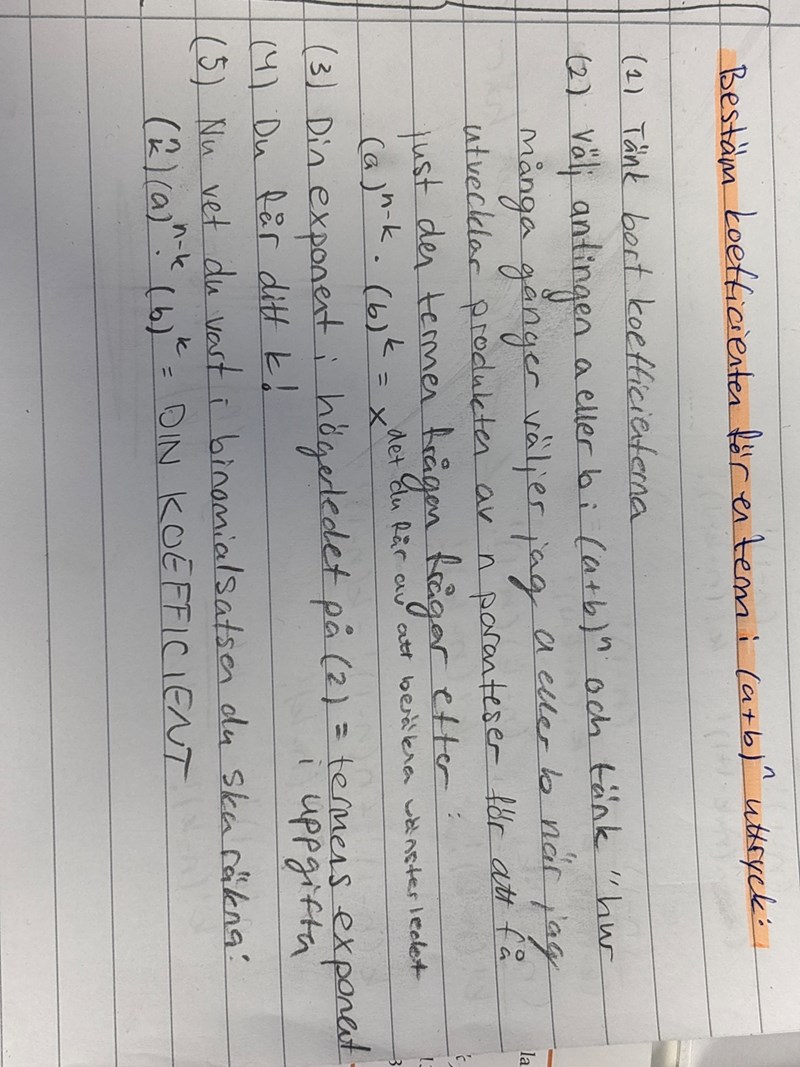 Bestäm koefficienten för en term i (a+b)^n uttryck:
(1) Tänk bort koefficienterna
(2) Välj antingen a eller b i (a+b)^n och tänk "hur
många gånger väljer jag a eller b när jag
utvecklar produkten av n paranteser för att få
just den termen frågan frågar efter:
(a)^{n-k} · (b)^k = x det du får av att beräkna vänsterledet
(3) Din exponent i högerledet på (2) = termens exponent
i uppgiften
(4) Du får ditt k!
(5) Nu vet du vart i binomialsatsen du ska räkna:
(n k)(a)^{n-k} · (b)^k = DIN KOEFFICIENT
la
3